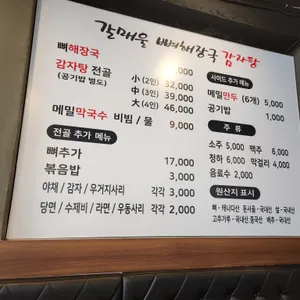 갈매울 뼈해장국 감자탕
뼈해장국 ,000
감자탕 전골 小 (2인) 32,000
(공기밥 별도) 中 (3인) 39,000
大 (4인) 46,000
메밀막국수 비빔 / 물 9,000
전골 추가 메뉴
뼈추가 17,000
볶음밥 3,000
야채 / 감자 / 우거지사리 각각 3,000
당면 / 수제비 / 라면 / 우동사리 각각 2,000
사이드 추가 메뉴
메밀만두 (6개) 5,000
공기밥 1,000
주 류
소주 5,000 맥주 6,000
청하 6,000 막걸리 4,000
음료수 2,000
원산지 표시
뼈 - 캐나다산 돈사골 - 국내산 쌀 - 국내산
고추가루 - 국내산,중국산 배추 - 국내산